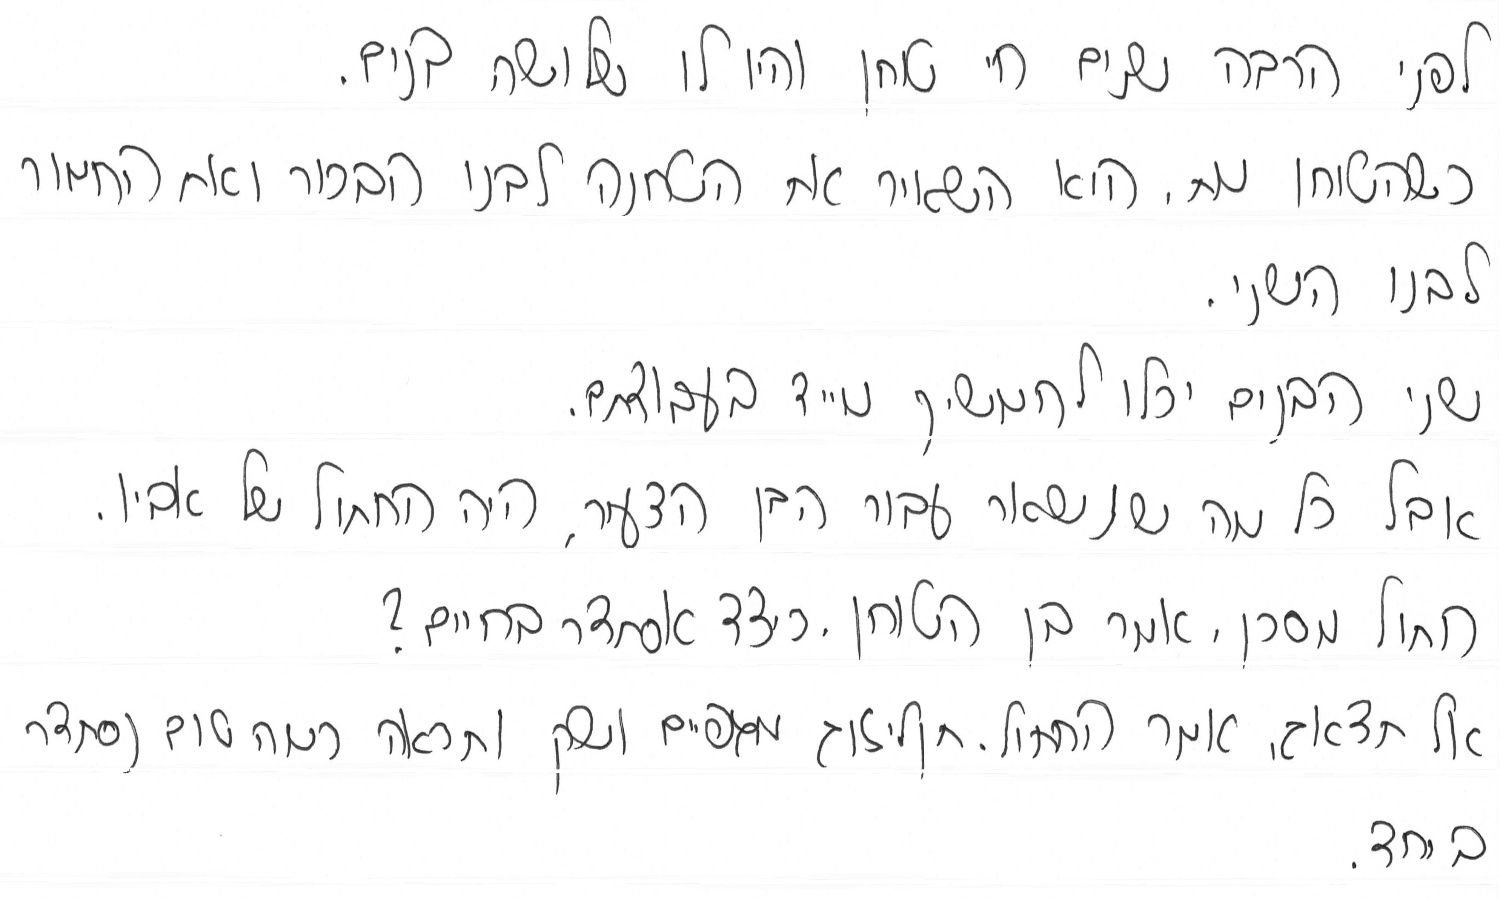 לפני הרבה שנים חי טוחן והיו לו שלושה בנים.
כשהטוחן מת, הוא השאיר את הטחנה לבנו הבכור ואת החמור
לבנו השני.
שני הבנים יכלו להמשיך מייד בעבודתם.
אבל כל מה שנשאר עבור הבן הצעיר, היה החתול של אביו.
חתול מסכן, אמר בן הטוחן, כיצד אסתדר בחיים?
אל תדאג, אמר החתול. תן לי זוג מגפיים ושק ותראה כמה טוב נסתדר
ביחד.